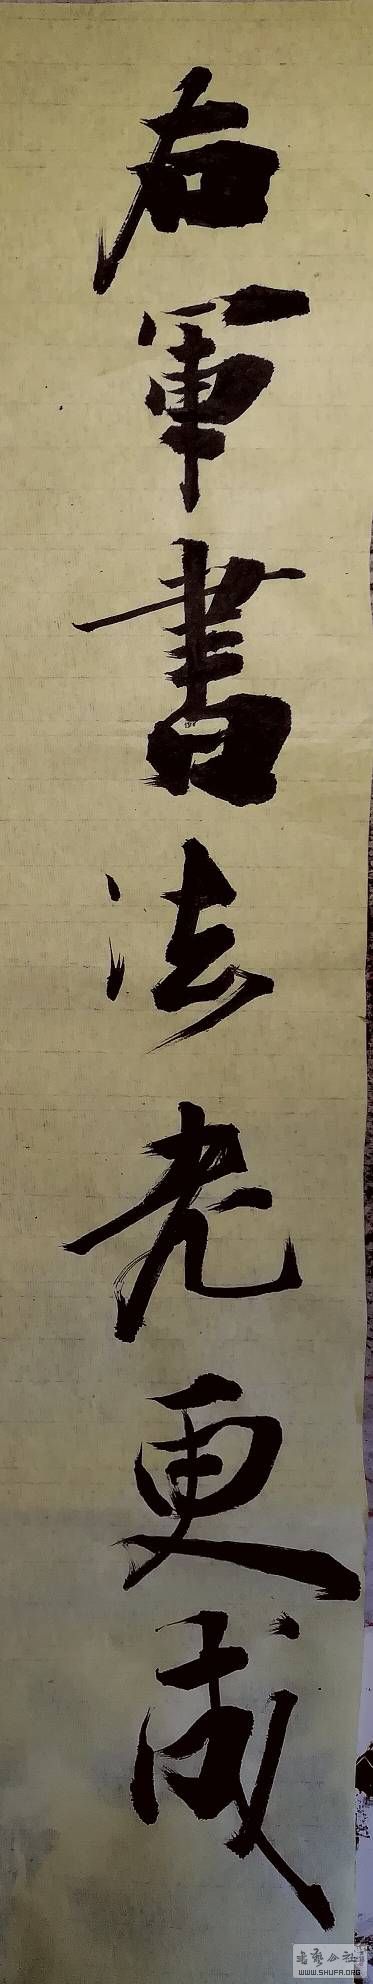 右軍書法老更成
书艺公社
WWW.SHUFA.ORG